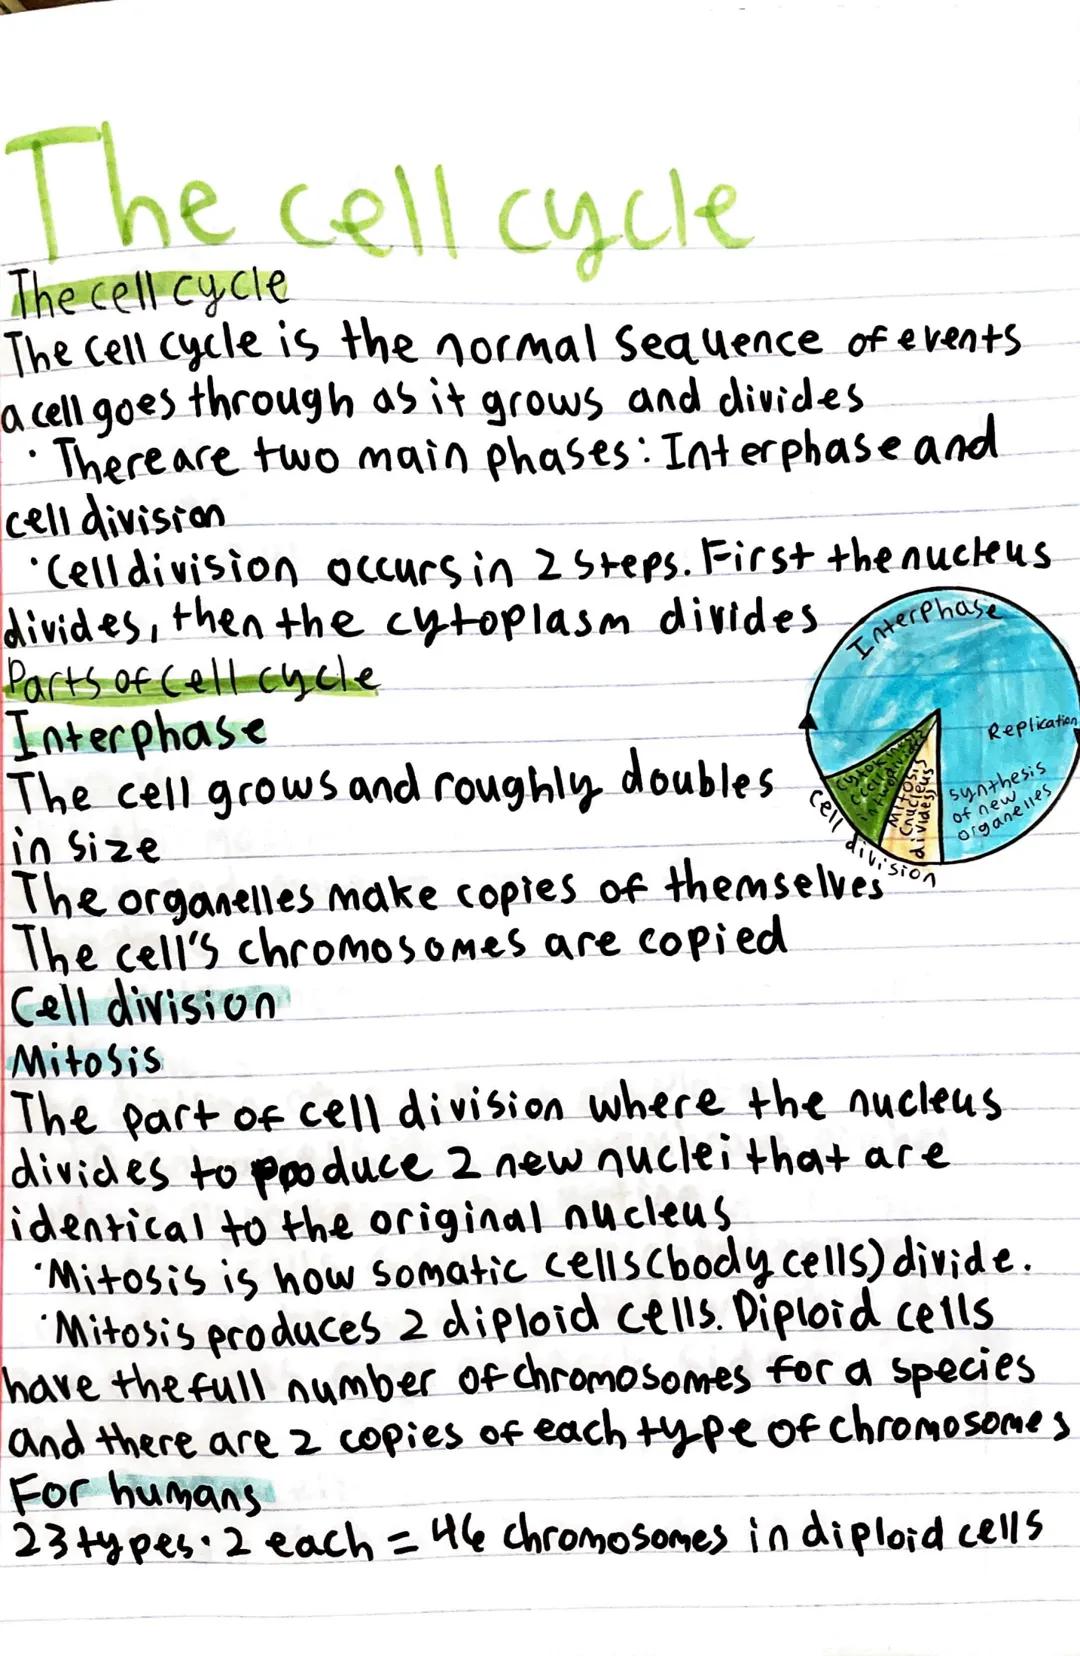 The cell cycle
The cell cycle
The cell cycle is the normal sequence of events
a cell goes through as it grows and divides
· There are two main phases: Interphase and
cell division
· Cell division occurs in 2 steps. First the nucleus
divides, then the cytoplasm divides
Parts of cell cycle
Interphase
The cell grows and roughly doubles
in size
The organelles make copies of themselves
The cell's chromosomes are copied
Cell division
Mitosis
The part of cell division where the nucleus
divides to produce 2 new nuclei that are
identical to the original nucleus
· Mitosis is how somatic cells (body cells) divide.
· Mitosis produces 2 diploid cells. Diploid cells
have the full number of chromosomes for a species
and there are 2 copies of each type of chromosomes
For humans
23 types · 2 each = 46 chromosomes in diploid cells
Interphase
Replication
synthesis
of new
organelles
Mitosis
(nucleus
divides)
cell division